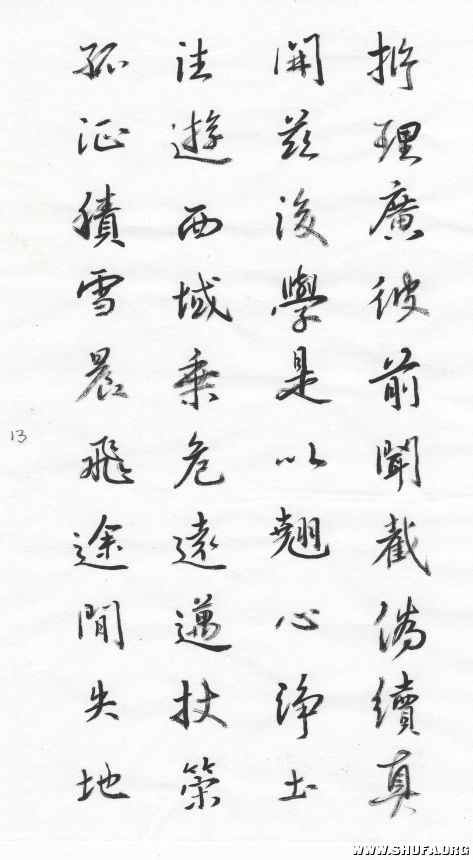 拆理廣彼前聞截偽續真
開茲後學是以翹心淨土
法遊西域乗危遠邁扙策
孤征積雪晨飛途間失地
13
WWW.SHUFA.ORG